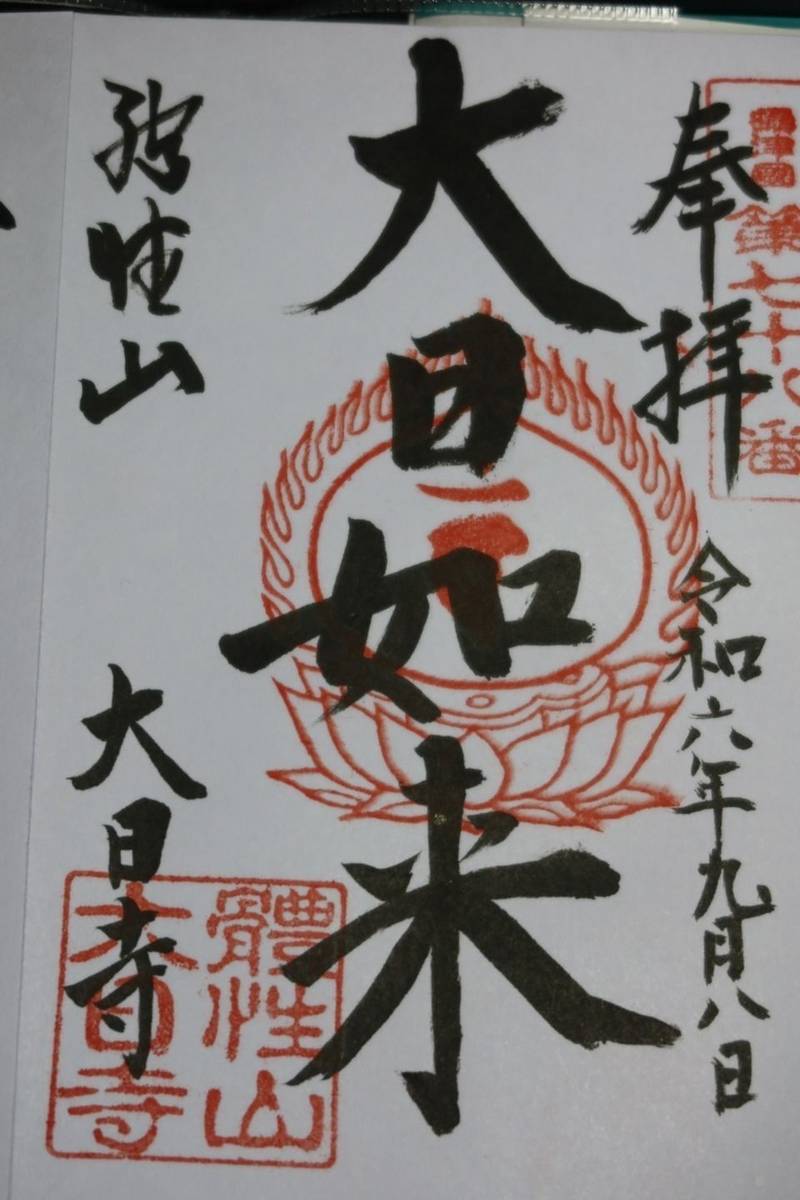 攝津國
第七十八番
奉拝
令和六年九月八日
大日如来
躰性山
大日寺
體性山
大日寺